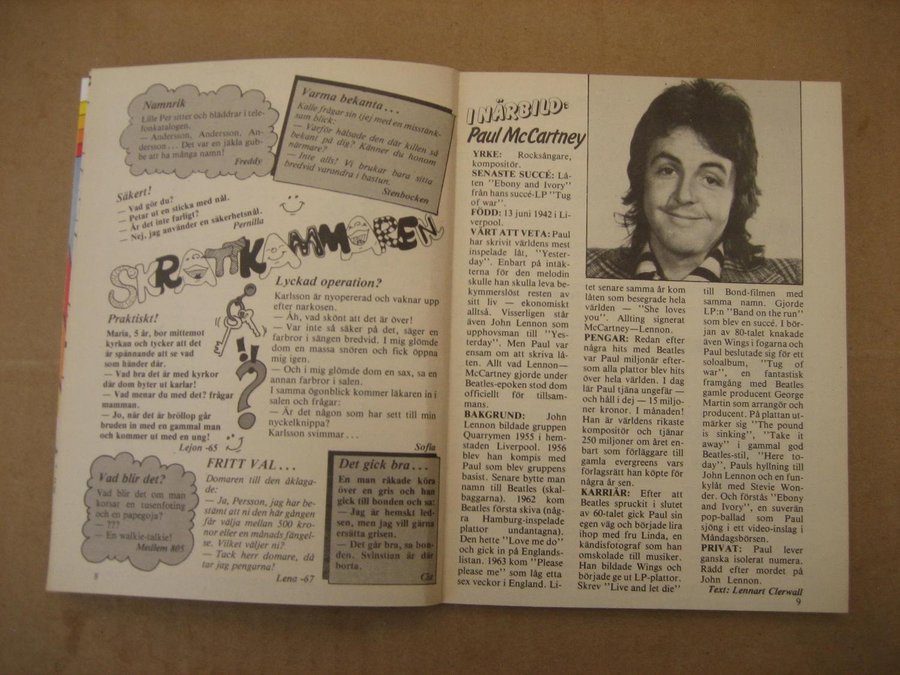 Namnrik
Lille Per sitter och bläddrar i tele-
fonkatalogen.
— Andersson, Andersson, An-
dersson... Det var en jäkla gub-
be att ha många namn!
Freddy
Varma bekanta...
Kalle frågar sin (je) med en misstänk-
sam blick:
— Varför hälsade den där killen så
bekant på dig? Känner du honom
närmare?
— Inte alls! Vi brukar bara sitta
bredvid varandra i bastun.
Stenbocken
Säkert!
— Vad gör du?
— Petar ut en sticka med nål.
— Är det inte farligt?
— Nej, jag använder en säkerhetsnål.
Pernilla
SKRATTKAMMAREN
Praktiskt!
Maria, 5 år, bor mittemot
kyrkan och tycker att det
är spännande att se vad
som händer där.
— Vad bra det är med kyrkor
där dom byter ut karlar!
— Vad menar du med det? frågar
mamman.
— Jo, när det är bröllop går
bruden in med en gammal man
och kommer ut med en ung!
Lejon -65
Lyckad operation?
Karlsson är nyopererad och vaknar upp
efter narkosen.
— Äh, vad skönt att det är över!
— Var inte så säker på det, säger en
farbror i sängen bredvid. I mig glömde
dom en massa snören och fick öppna
mig igen.
— Och i mig glömde dom en sax, sa en
annan farbror i salen.
I samma ögonblick kommer läkaren in i
salen och frågar:
— Är det någon som har sett till min
nyckelknippa?
Karlsson svimmar...
Sofia
Vad blir det?
Vad blir det om man
korsar en tusenfoting
och en papegoja?
— ???
— En walkie-talkie!
Medlem 805
FRITT VAL...
Domaren till den åklaga-
de:
— Ja, Persson, jag har be-
stämt att ni den här gången
får välja mellan 500 kro-
nor eller en månads fängel-
se. Vilket väljer ni?
— Tack herr domare, då
tar jag pengarna!
Lena -67
Det gick bra...
En man råkade köra
över en gris och han
gick till bonden och sa:
— Jag är hemskt led-
sen, men jag vill gärna
ersätta grisen.
— Det går bra, sa bon-
den. Svinstian är där
borta.
Cia
8
I NÄRBILD:
Paul McCartney
YRKE: Rocksångare,
kompositör.
SENASTE SUCCÉ: Lå-
ten "Ebony and Ivory"
från hans succé-LP "Tug
of war".
FÖDD: 13 juni 1942 i Li-
verpool.
VÄRT ATT VETA: Paul
har skrivit världens mest
inspelade låt, "Yester-
day". Enbart på intäk-
terna för den melodin
skulle han skulla leva be-
kymmerslöst resten av
sitt liv — ekonomiskt
alltså. Visserligen står
även John Lennon som
upphovsman till "Yes-
terday". Men Paul var
ensam om att skriva lå-
ten. Allt vad Lennon—
McCartney gjorde under
Beatles-epoken stod dom
officiellt för tillsam-
mans.
BAKGRUND: John
Lennon bildade gruppen
Quarrymen 1955 i hem-
staden Liverpool. 1956
blev han kompis med
Paul som blev gruppens
basist. Senare bytte man
namn till Beatles (skal-
baggarna). 1962 kom
Beatles första skiva (någ-
ra Hamburg-inspelade
plattor undantagna).
Den hette "Love me do"
och gick in på Englands-
listan. 1963 kom "Please
please me" som låg etta
sex veckor i England. Li-
tet senare samma år kom
låten som besegrade hela
världen — "She loves
you". Allting signerat
McCartney—Lennon.
PENGAR: Redan efter
några hits med Beatles
var Paul miljonär efter-
som alla plattor blev hits
över hela världen. I dag
lär Paul tjäna ungefär —
och håll i dej — 15 miljo-
ner kronor. I månaden!
Han är världens rikaste
kompositör och tjänar
250 miljoner om året en-
bart som förläggare till
gamla evergreens vars
förlagsrätt han köpte för
några år sen.
KARRIÄR: Efter att
Beatles spruckit i slutet
av 60-talet gick Paul sin
egen väg och började lira
ihop med fru Linda, en
kändisfotograf som han
omskolade till musiker.
Han bildade Wings och
började ge ut LP-plattor.
Skrev "Live and let die"
till Bond-filmen med
samma namn. Gjorde
LP:n "Band on the run"
som blev en succé. I bör-
jan av 80-talet knakade
även Wings i fogarna och
Paul beslutade sig för ett
soloalbum, "Tug of
war", en fantastisk
framgång med Beatles
gamle producent George
Martin som arrangör och
producent. På plattan ut-
märker sig "The pound
is sinking", "Take it
away" i gammal god
Beatles-stil, "Here to-
day", Pauls hyllning till
John Lennon och en fun-
kylåt med Stevie Won-
der. Och förstås "Ebony
and Ivory", en suverän
pop-ballad som Paul
sjöng i ett video-inslag i
Måndagsbörsen.
PRIVAT: Paul lever
ganska isolerat numera.
Rädd efter mordet på
John Lennon.
Text: Lennart Clerwall
9